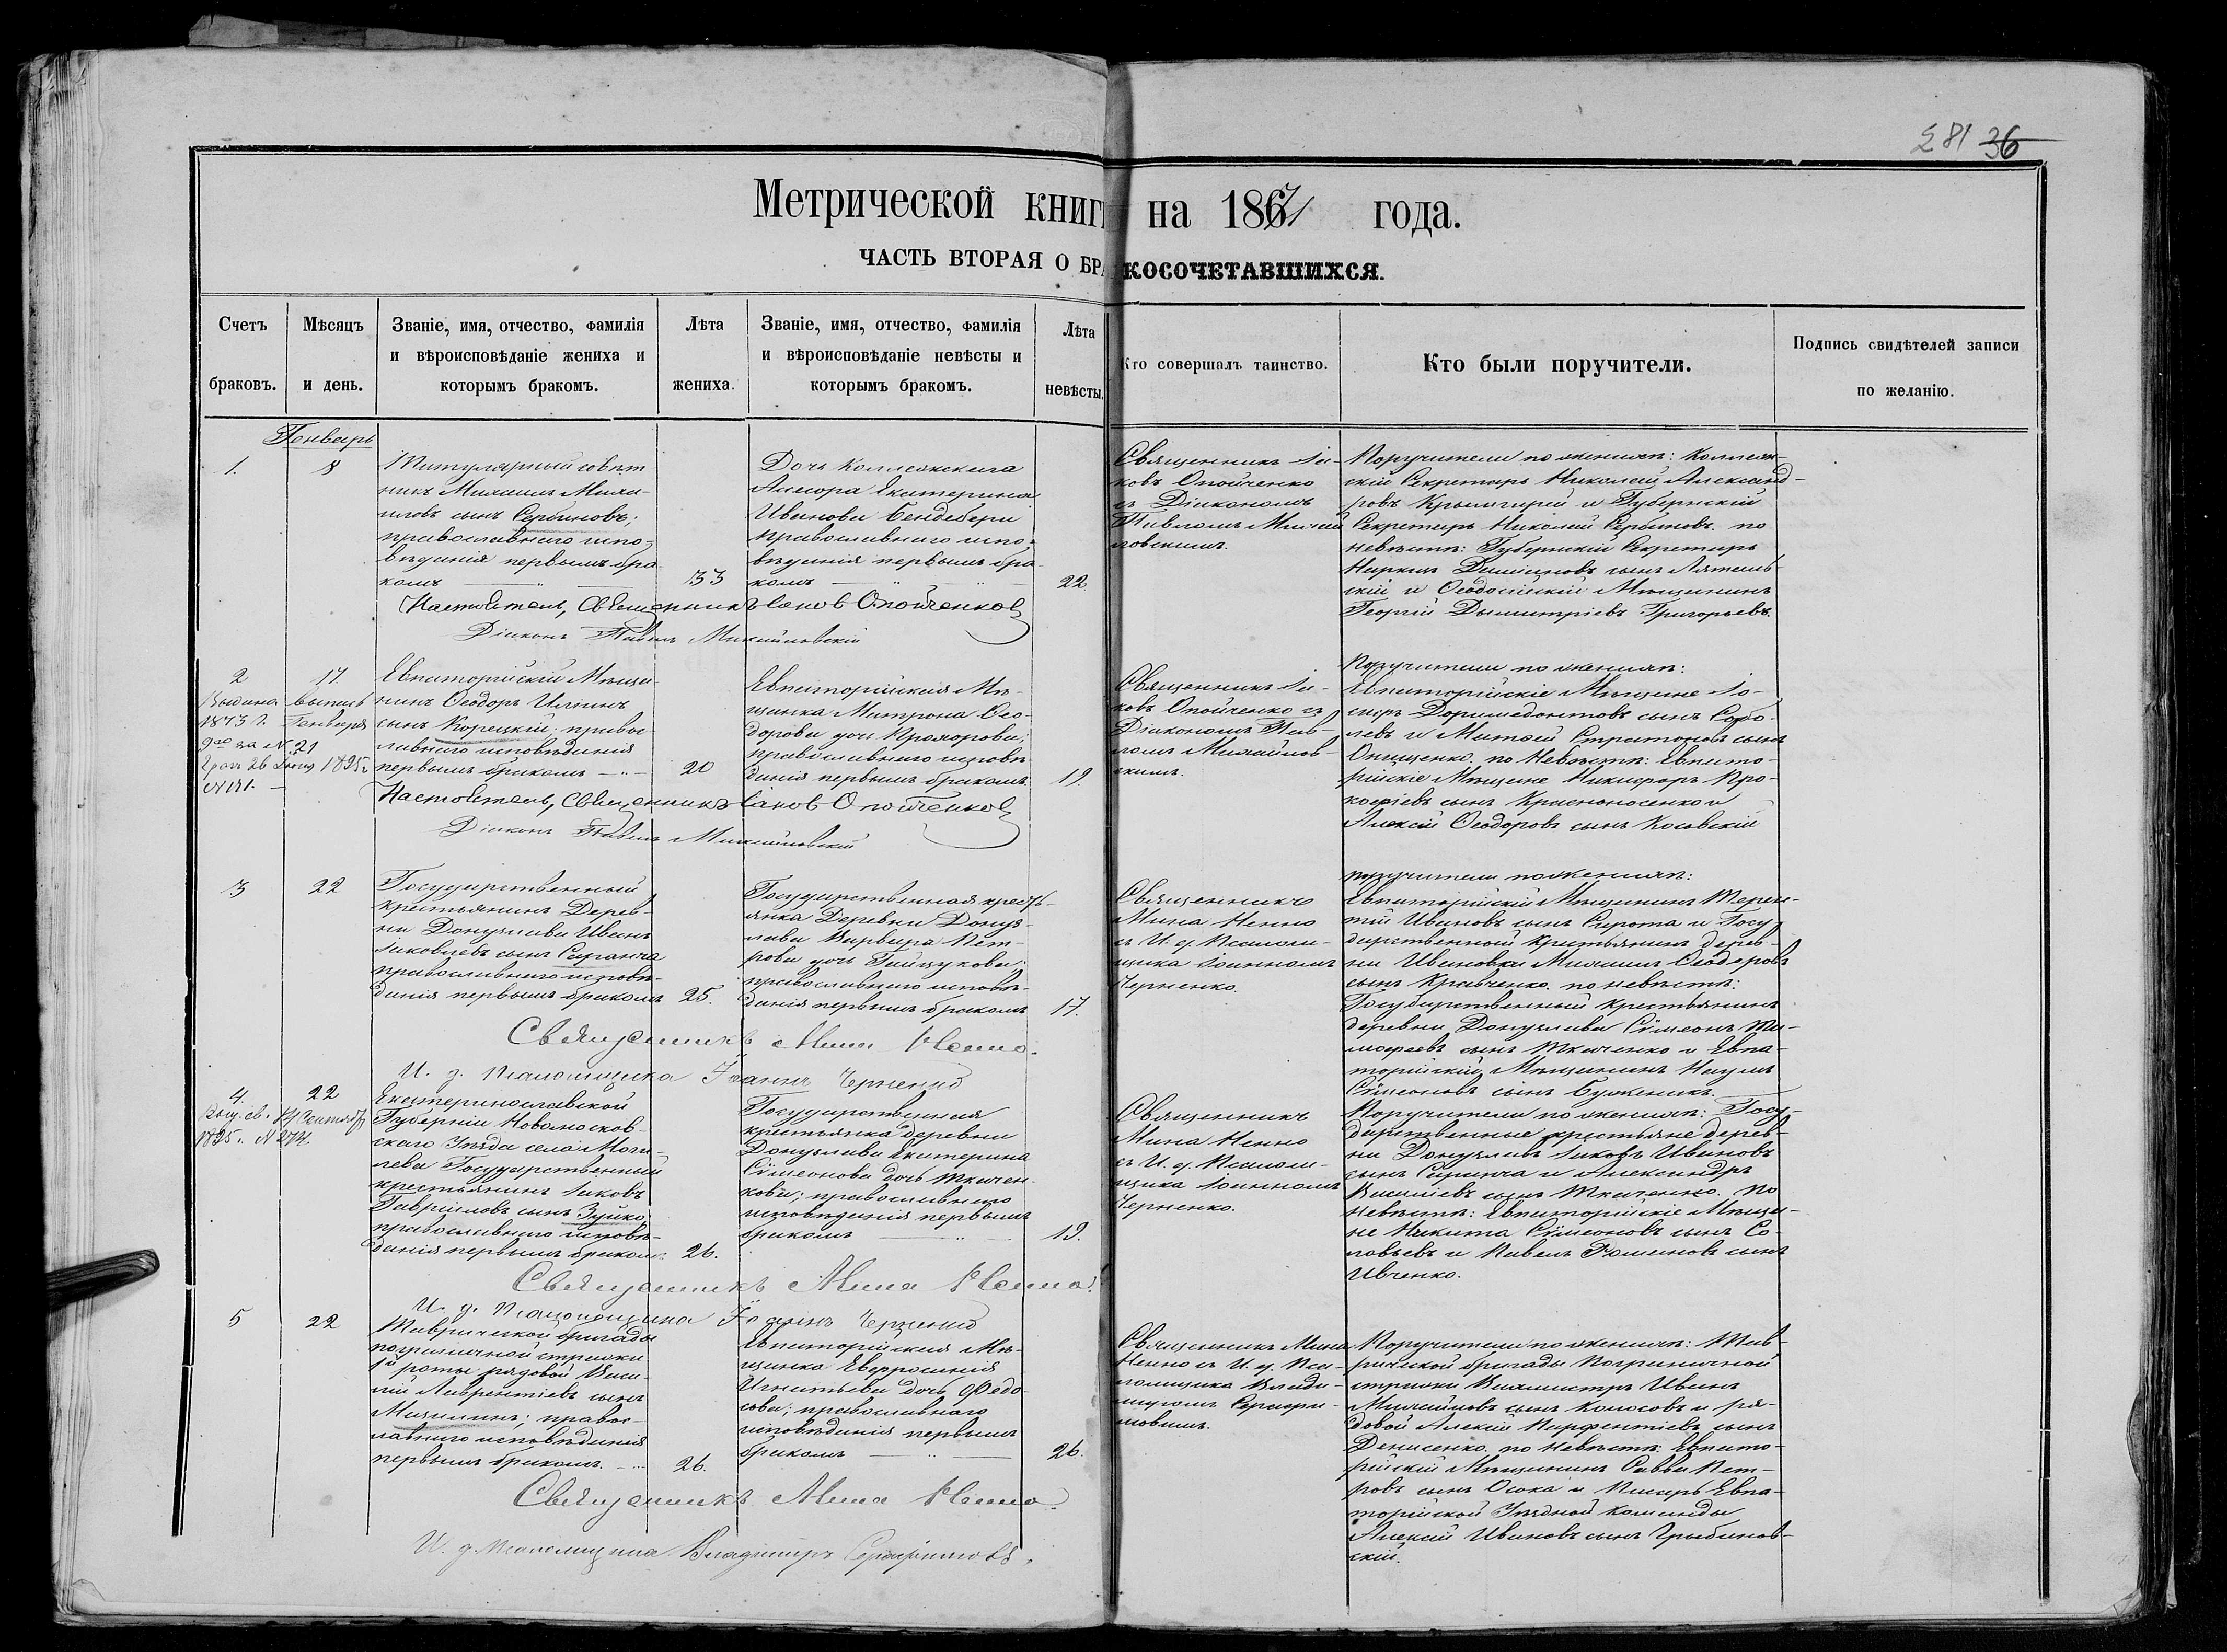 281 36
Метрической книги на 1871 года.
ЧАСТЬ ВТОРАЯ О БРАКОСОЧЕТАВШИХСЯ.
Счетъ браковъ.
Мѣсяцъ и день.
Званіе, имя, отчество, фамилія и вѣроисповѣданіе жениха и которымъ бракомъ.
Лѣта жениха.
Званіе, имя, отчество, фамилія и вѣроисповѣданіе невѣсты и которымъ бракомъ.
Лѣта невѣсты.
Кто совершалъ таинство.
Кто были поручители.
Подпись свидѣтелей записи по желанію.
Генварь
1.
8
Титулярный совѣт-
никъ Михаилъ Миха-
иловъ сынъ Сербиновъ;
православнаго испо-
вѣданія первымъ бра-
комъ
33
Дочь Коллежскаго
Ассесора Екатерина
Иванова Бендебери
православнаго испо-
вѣданія первымъ бра-
комъ
22
Священникъ Іа-
ковъ Опойченко
съ Діакономъ
Павломъ Михай-
ловскимъ.
Поручители по женихѣ: Коллеж-
скій Секретарь Николай Александ-
ровъ и Губернскій
Секретарь Николай Сербиновъ. по
невѣстѣ: Губернскій Секретарь
сынъ
скій и Ѳеодосійскій Мѣщанинъ
Георгій Дымитріевъ Григорьевъ.
Настоятель, Священникъ Іаковъ Опойченко
Діаконъ Павелъ Михайловскій
2
17
Выдана выпись
1873 г. Генваря
9го за № 21
1895 г.
Евпаторійскій Мѣща-
нинъ Ѳеодоръ Ильинъ
сынъ Корецкій; право-
славнаго исповѣданія
первымъ бракомъ
20
Евпаторійская Мѣ-
щанка Матрона Ѳео-
дорова дочь Прохорова;
православнаго исповѣ-
данія первымъ бракомъ.
19.
Священникъ Іа-
ковъ Опойченко съ
Діакономъ Пав-
ломъ Михайлов-
скимъ.
Поручители по женихѣ:
Евпаторійскіе Мѣщане Іо-
сифъ Доримедонтовъ сынъ Собо-
левъ и Матвей Стратоновъ сынъ
Онищенко. по Невѣстѣ: Евпато-
рійскіе Мѣщане Никифоръ Про-
кофіевъ сынъ Красноносенко и
Алексѣй Ѳеодоровъ сынъ Косовскій
Настоятель, Священникъ Іаковъ Опойченко
Діаконъ Павелъ Михайловскій
3
22
Государственный
крестьянинъ Дерев-
ни Донузлава Иванъ
Іаковлевъ сынъ Саранча
православнаго исповѣ-
данія первымъ бракомъ
25.
Государственная кресть-
янка Деревни Донуз-
лава Варвара Пет-
рова дочь Гайдукова;
православнаго исповѣ-
данія первымъ бракомъ
17.
Священникъ
Мина Ненно
съ И. д. Псалом-
щика Іоанномъ
Черненко.
поручители по женихѣ:
Евпаторійскій Мѣщанинъ Терен-
тій Ивановъ сынъ Сирота и Госу-
дарственный Крестьянинъ дерев-
ни Ивановки Михаилъ Ѳеодоровъ
сынъ Кравченко. по невѣстѣ:
Государственный Крестьянинъ
деревни Донузлава Сѵмеонъ Ти-
мофеевъ сынъ Ткаченко и Евпа-
торійскій Мѣщанинъ Наумъ
Сѵмеоновъ сынъ Буженикъ.
Священникъ Мина Ненно.
И. д. Псаломщика Іоаннъ Черненко
4.
22
1895 г. № 274.
Екатеринославской
Губерніи Новомосков-
скаго Уѣзда села Моги-
лева Государственный
крестьянинъ Іаковъ
Гавріиловъ сынъ Зуйко;
православнаго исповѣ-
данія первымъ бракомъ
26.
Государственная
крестьянка деревни
Донузлава Екатерина
Сѵмеонова дочь Ткачен-
кова; православнаго
исповѣданія первымъ
бракомъ
19.
Священникъ
Мина Ненно
съ И. д. Псалом-
щика Іоанномъ
Черненко.
Поручители по женихѣ: Госу-
дарственные крестьяне дерев-
ни Донузлавъ Іаковъ Ивановъ
сынъ Саранча и Александръ
Василіевъ сынъ Ткаченко. По
невѣстѣ: Евпаторійскіе Мѣща-
не Никита Сѵмеоновъ сынъ Со-
ловьевъ и Павелъ Романовъ сынъ
Ивченко.
Священникъ Мина Ненно.
И. д. Псаломщика Іоаннъ Черненко
5
22
Таврической бригады
пограничной стражи
1й роты рядовой Васи-
лій Лаврентіевъ сынъ
православ-
наго исповѣданія
первымъ бракомъ.
26.
Евпаторійская Мѣ-
щанка Евфросинія
Игнатьева дочь Федо-
сова; православнаго
исповѣданія первымъ
бракомъ
26.
Священникъ Мина
Ненно съ И. д. Пса-
ломщика Влади-
миромъ Серафи-
мовымъ.
Поручители по женихѣ: Тав-
рической бригады Пограничной
стражи Вахмистръ Иванъ
Михайловъ сынъ Колосовъ и ря-
довой Алексѣй Парфентіевъ сынъ
Денисенко. по невѣстѣ: Евпато-
рійскій Мѣщанинъ Савва Пет-
ровъ сынъ Осока и Писарь Евпа-
торійской Уѣздной команды
Алексѣй Ивановъ сынъ Грыбинов-
скій.
Священникъ Мина Ненно.
И. д. Псаломщика Владимиръ Серафимовъ.